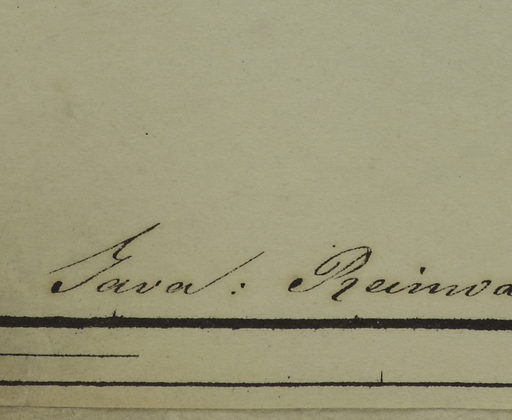 Java: Reinwa